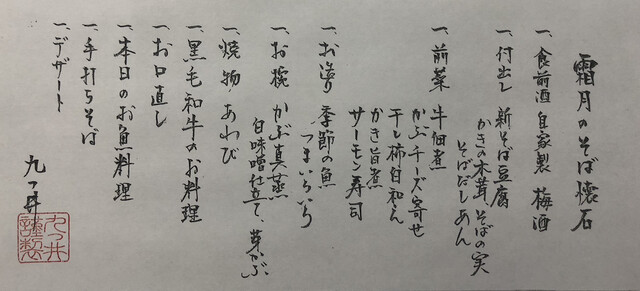 霜月のそば懐石
一、食前酒 自家製 梅酒
一、付出し 新そば豆腐
かきの木茸、そばの実
そばだしあん
一、前菜 牛佃煮
かぶチーズ寄せ
干し柿白和え
かき旨煮
サーモン寿司
一、お造り 季節の魚
つまいろいろ
一、お椀 かぶ真蒸
白味噌仕立て、芽かぶ、
一、焼物 あわび
一、黒毛和牛のお料理
一、お口直し
一、本日のお魚料理
一、手打ちそば
一、デザート
九つ井
九つ井
謹製